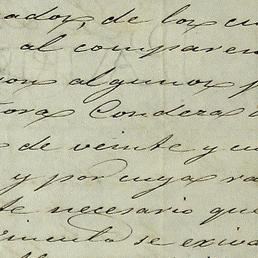 ador, de los cu
al comparen
on algunos p
tora Condesa
de veinte y cu
y por cuya ra
te necesario que
vinculo se exiva